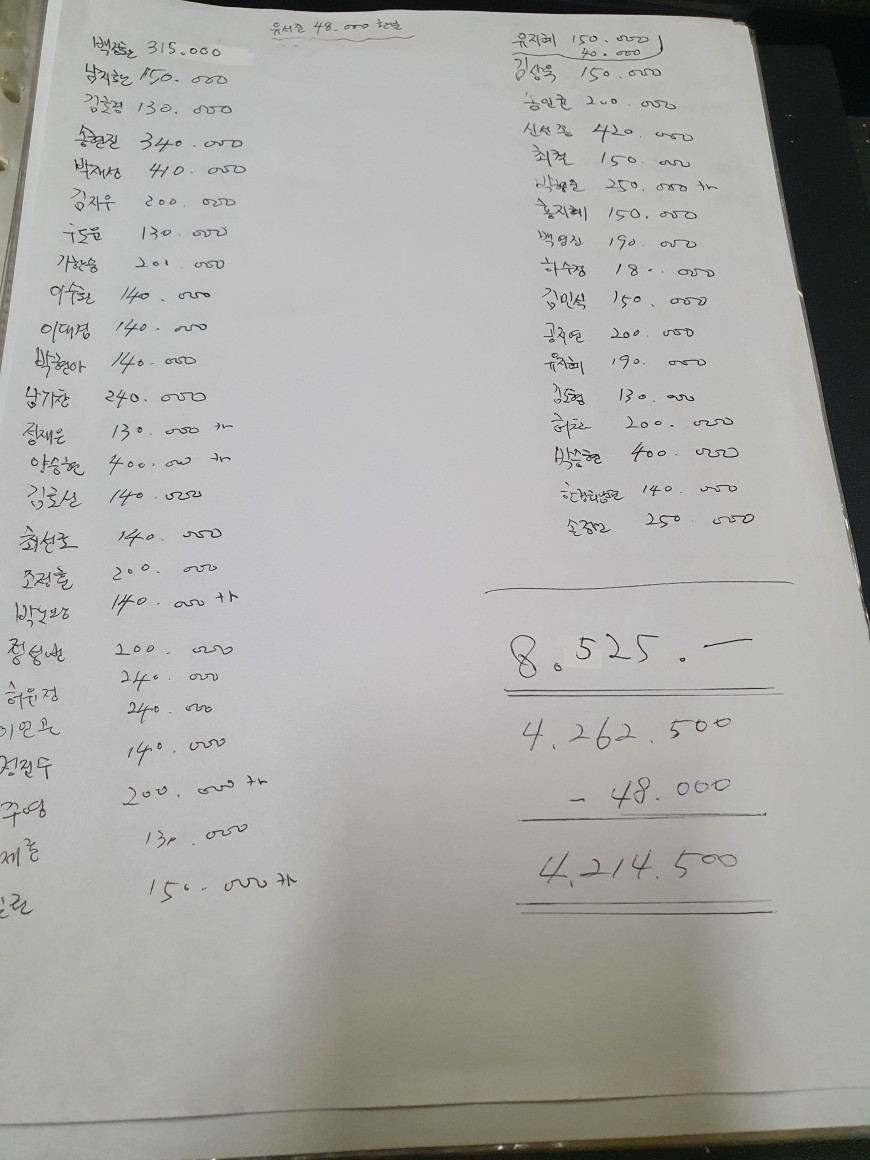 유서준 48.000 환불
백장환 315.000
남지훈 150.000
김효정 130.000
송현진 340.000
박재성 410.000
김지우 200.000
우도윤 130.000
가한승 200.000
이수환 140.000
이대경 140.000
박현아 140.000
남기찬 240.000
정재은 130.000 카
양승현 400.000 카
김효선 140.000
최선호 140.000
조정훈 200.000
140.000 카
200.000
허유정 240.000
이연우 240.000
정진우 140.000
주영 200.000 카
제훈 130.000
150.000 카
유지혜 150.000
40.000
김상욱 150.000
송민균 200.000
신선중 420.000
최혁 150.000
250.000 카
홍지혜 150.000
백영진 190.000
하수정 180.000
김민석 150.000
공지연 200.000
유지혜 190.000
김도형 130.000
허찬 200.000
박승현 400.000
140.000
손정민 250.000
8.525.—
4.262.500
- 48.000
4.214.500